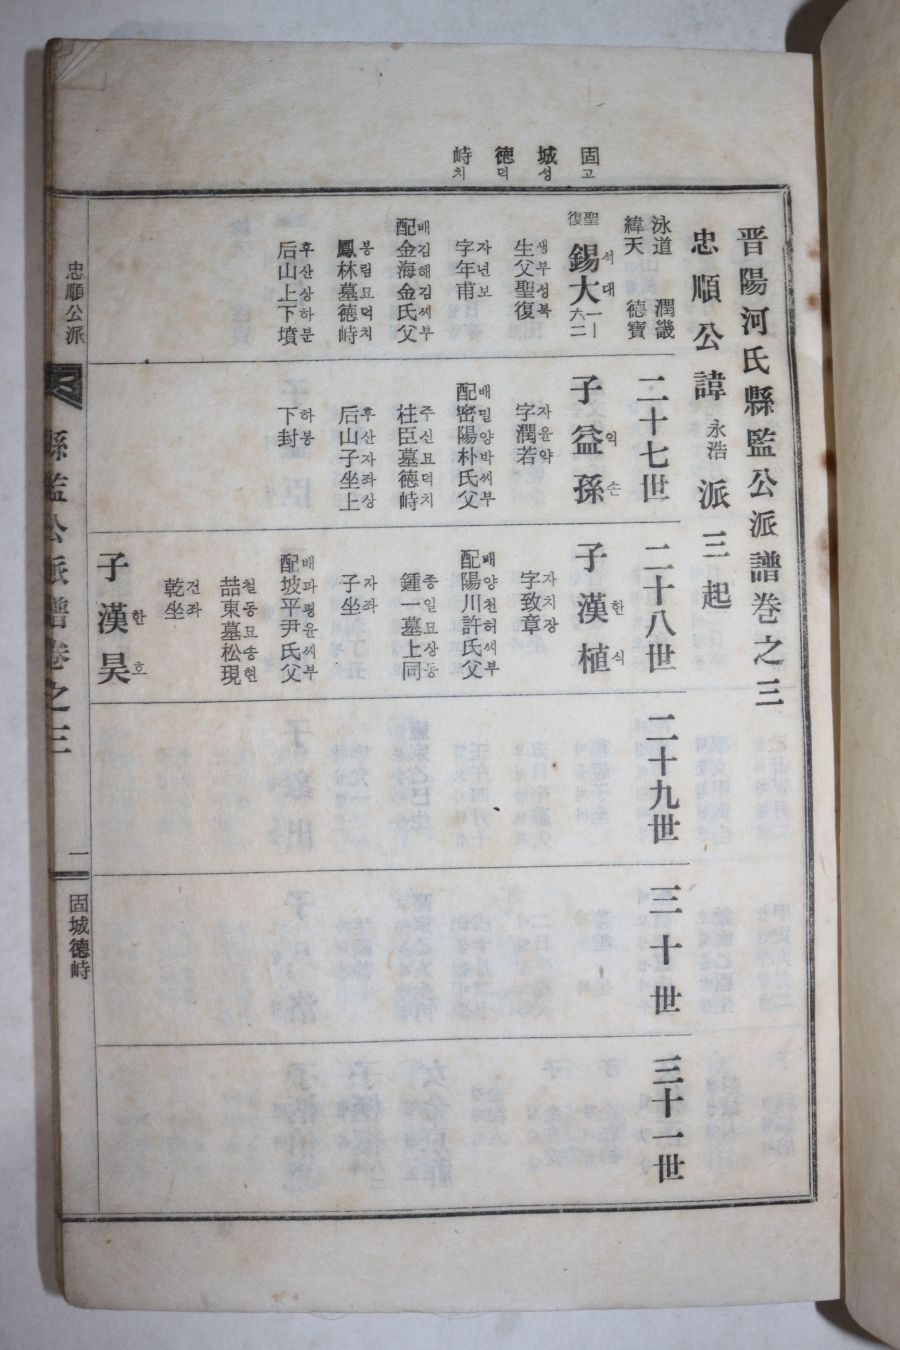 固城德峙
고성덕치
晋陽河氏縣監公派譜卷之三
忠順公諱永浩派三起
泳道 潤畿
緯天 德寶
二十七世
二十八世
二十九世
三十世
三十一世
聖復
錫大
석대
一一
六二
生父聖復
생부성복
字年甫
자년보
配金海金氏父
배김해김씨부
鳳林墓德峙
봉림묘덕치
后山上下墳
후산상하분
子益孫
익손
字潤若
자윤약
配密陽朴氏父
배밀양박씨부
柱臣墓德峙
주신묘덕치
后山子坐上
후산자좌상
下封
하봉
子漢植
한식
字致章
자치장
配陽川許氏父
배양천허씨부
鍾一墓上同
종일묘상동
子坐
자좌
配坡平尹氏父
배파평윤씨부
喆東墓松現
철동묘송현
乾坐
건좌
子漢昊
한호
忠順公派
縣監公派譜卷之三
一
固城德峙